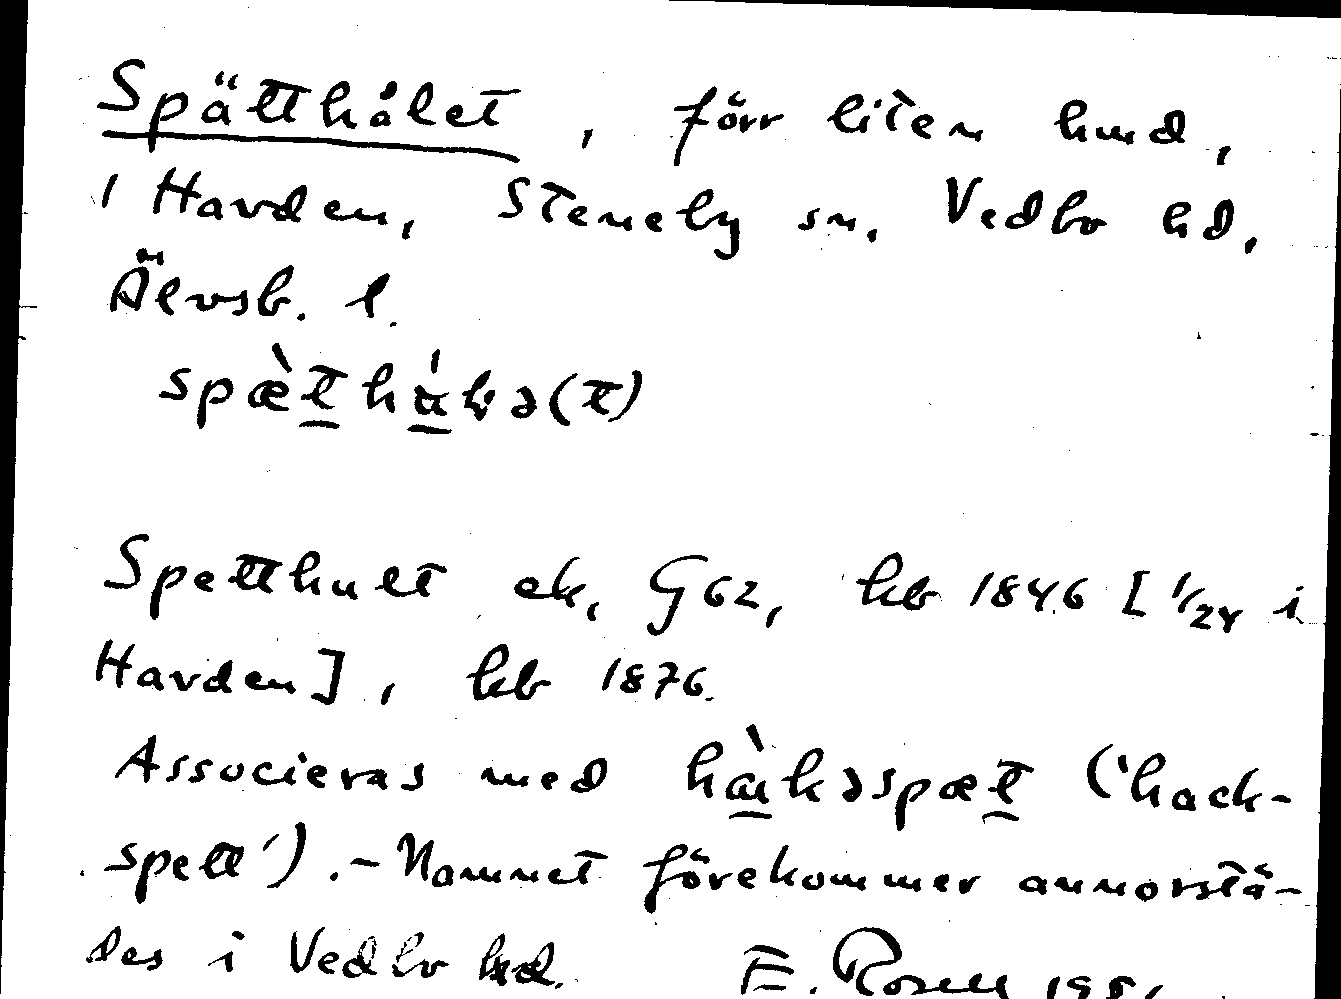 Spätthålet, förr liten lund,
i Harden, Steneby sn, Vedbo hd,
Älvsb. l.
spæ̀t̲há̲lə(t)
Spetthult ek, G62, hb 1846 [1/24 i
Harden], hb 1876.
Associeras med hà̲kəspæt̲ ('hack-
spett'). - Namnet förekommer annorstä-
des i Vedbo hd. E. Rosell